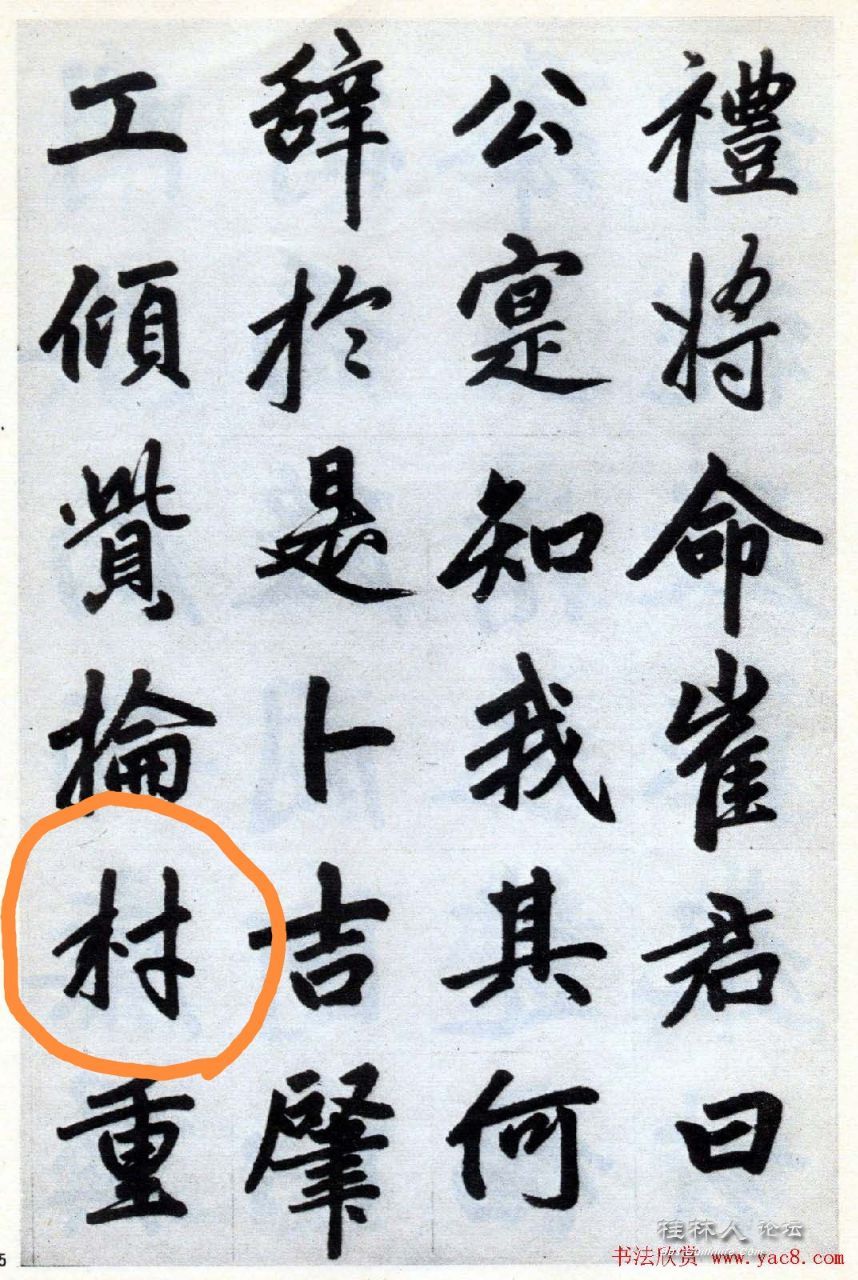 禮將命崔君曰
公寔知我其何
辭於是卜吉肇
工傾貲掄材重
桂林人论坛
书法欣赏 www.yac8.com
5